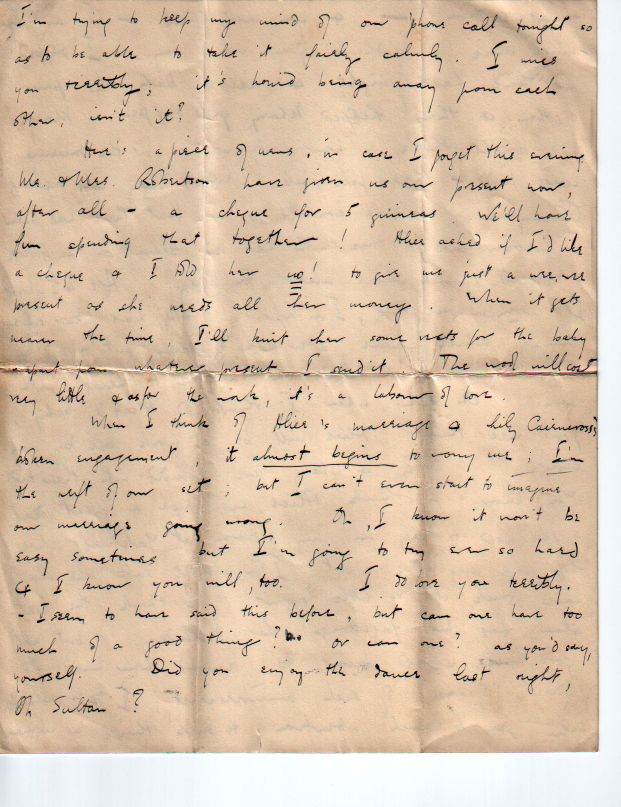 I'm trying to keep my mind off our 'phone call tonight so
as to be able to take it fairly calmly. I miss
you terribly; it's horrid being away from each
other, isn't it?
Here's a piece of news, in case I forget this evening
Mr. & Mrs. Robertson have given us our present now,
after all - a cheque for 5 guineas. We'll have
fun spending that together! Alice asked if I'd like
a cheque & I told her no! to give me just a wee, wee
present as she needs all her money. When it gets
nearer the time, I'll knit her some vests for the baby
apart from whatever present I send it. The wool will cost
very little & as for the work, it's a labour of love.
When I think of Alice's marriage & Lily Cairncross's
broken engagement, it almost begins to worry me; I'm
the next of our set; but I can't even start to imagine
our marriage going wrong. Oh, I know it won't be
easy sometimes but I'm going to try ever so hard
& I know you will, too. I do love you terribly.
- I seem to have said this before, but can one have too
much of a good thing? or can one? as you'd say,
yourself. Did you enjoy the dance last night,
Oh Sultan?